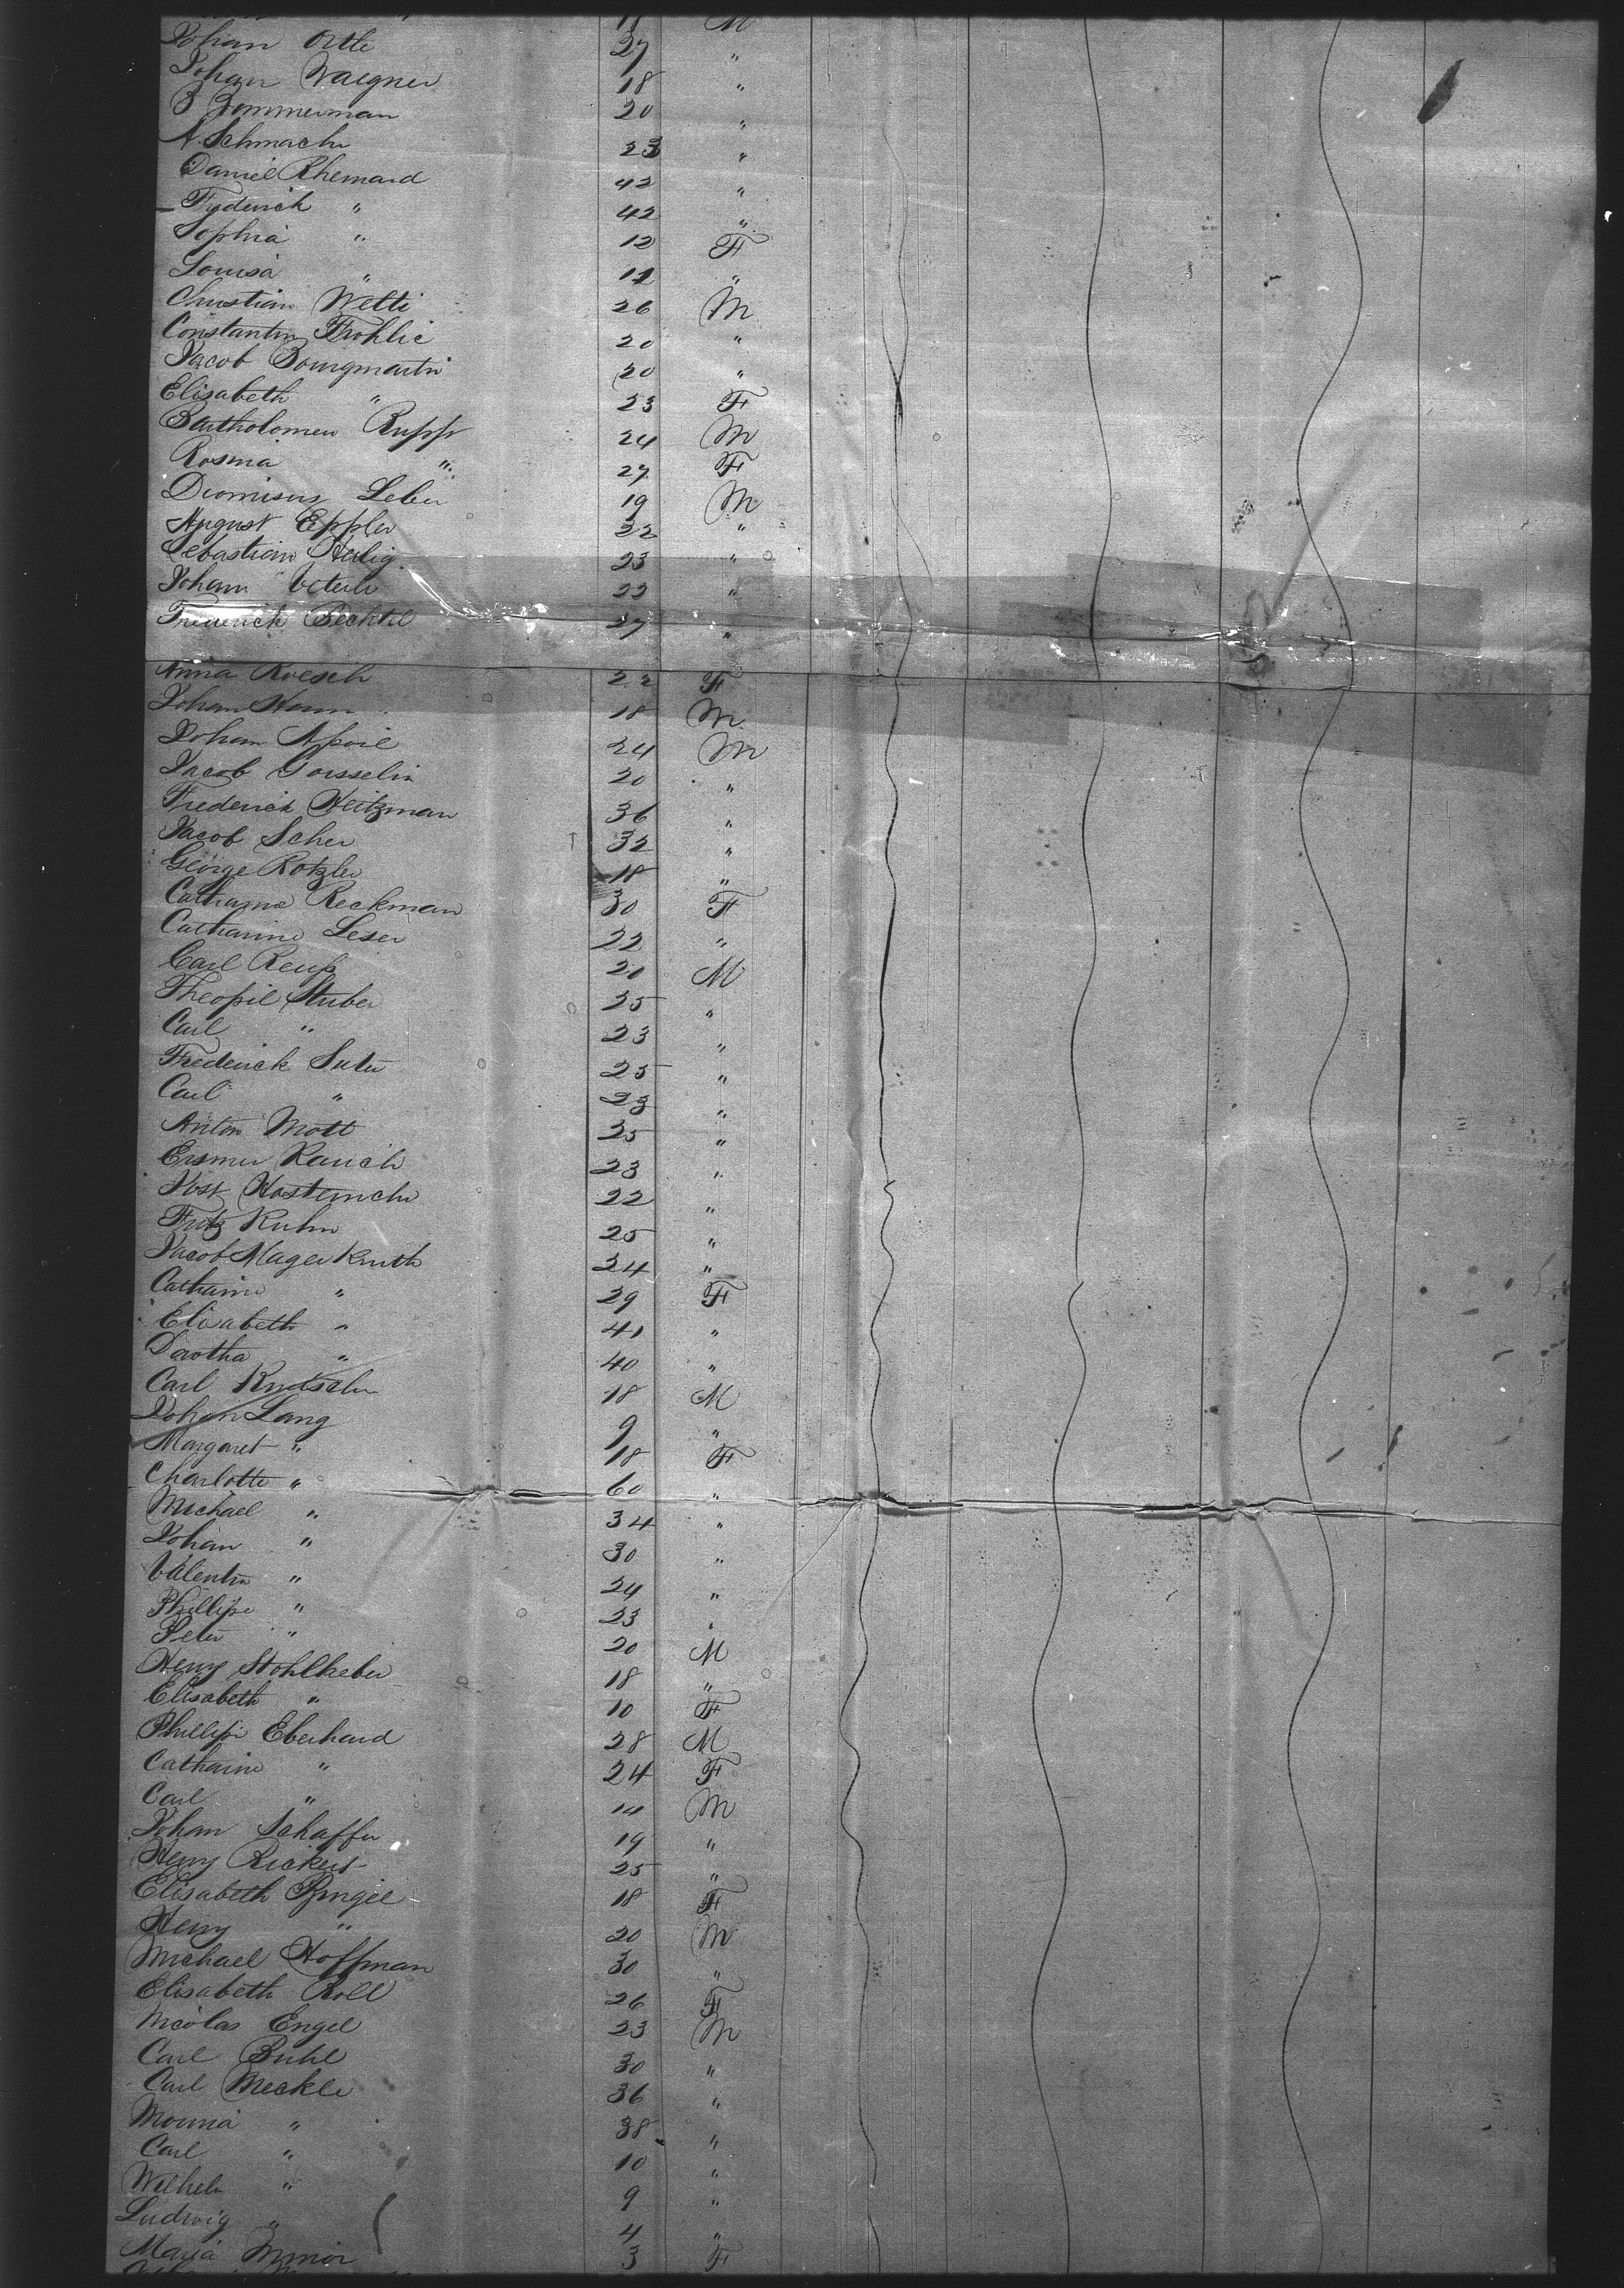 18 M
Johan Ortle 27 "
Johan Waegner 18 "
B Zimmerman 20 "
A. Schmacher 23 "
Daniel Rhemard 42 "
Fryderick " 42 "
Sophia " 12 F
Louisa " 11 "
Christian Wetti 26 M
Constantin Frohlic 20 "
Jacob Bourgmartin 20 "
Elisabeth " 23 F
Bartholomew Rupp 24 M
Rosina " 27 F
Dionisius Leber 19 M
August Eppler 22 "
Sebastian Heilig 23 "
Johann 22 "
Frederick Bechtel 27 "
Anna Roesch 22 F
Johan Hann 18 M
Johan April 24 M
Jacob Gorsselin 20 "
Frederick Heitzman 36 "
Jacob Scher 32 "
George Rotzler 18 "
Catharine Reckman 30 F
Catharine Leser 22 "
Carl Reuss 21 M
Theopil Stuber 25 "
Carl " 23 "
Frederick Suter 25 "
Carl " 23 "
Anton Mott 25 "
Ersmer Rauch 23 "
Jost 22 "
Fritz Kuhn 25 "
Jacob Mager Knuth 24 "
Catharine " 29 F
Elisabeth " 41 "
Dorotha " 40 "
Carl 18 M
Johan Lang 9 "
Margaret " 18 F
Charlotte " 60 "
Michael " 34 "
Johan " 30 "
Valentin " 24 "
Phillipe " 23 "
Peter " 20 M
Henry Stohlheber 18 "
Elisabeth " 10 F
Phillip Eberhard 28 M
Catharine " 24 F
Carl " 10 M
Johan Schaffer 19 "
Henry Rickert 25 "
Elisabeth Ringel 18 F
Henry " 20 M
Michael Hoffman 30 "
Elisabeth Roll 26 F
Nicolas Engel 23 M
Carl Buhl 30 "
Carl Meckle 36 "
Mouna " 38 "
Carl " 10 "
Wilhelm " 9 "
Ludwig " 4 "
Maria 3 F